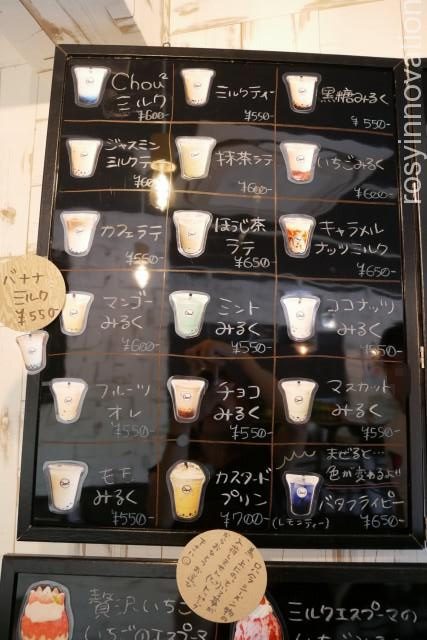 Chou²
ミルク
¥600-
ミルクティー
¥550-
黒糖みるく
¥550-
ジャスミン
ミルクティ
¥600
抹茶ラテ
¥600-
いちごみるく
¥600-
カフェラテ
¥550-
ほうじ茶
ラテ
¥650
キャラメル
ナッツミルク
¥650-
バナナ
ミルク
¥550
マンゴー
みるく
¥600-
ミント
みるく
¥550-
ココナッツ
みるく
¥550-
フルーツ
オレ
¥550
チョコ
みるく
¥550-
マスカット
みるく
¥550-
みるく
¥550-
カスタード
プリン
¥700-
まぜると…
色が変わるよ!!
バタフライピー
(レモンティー)
¥650-
贅沢いちご
いちごのエスプーマ
ミルクエスプーマの
rosyinnovation